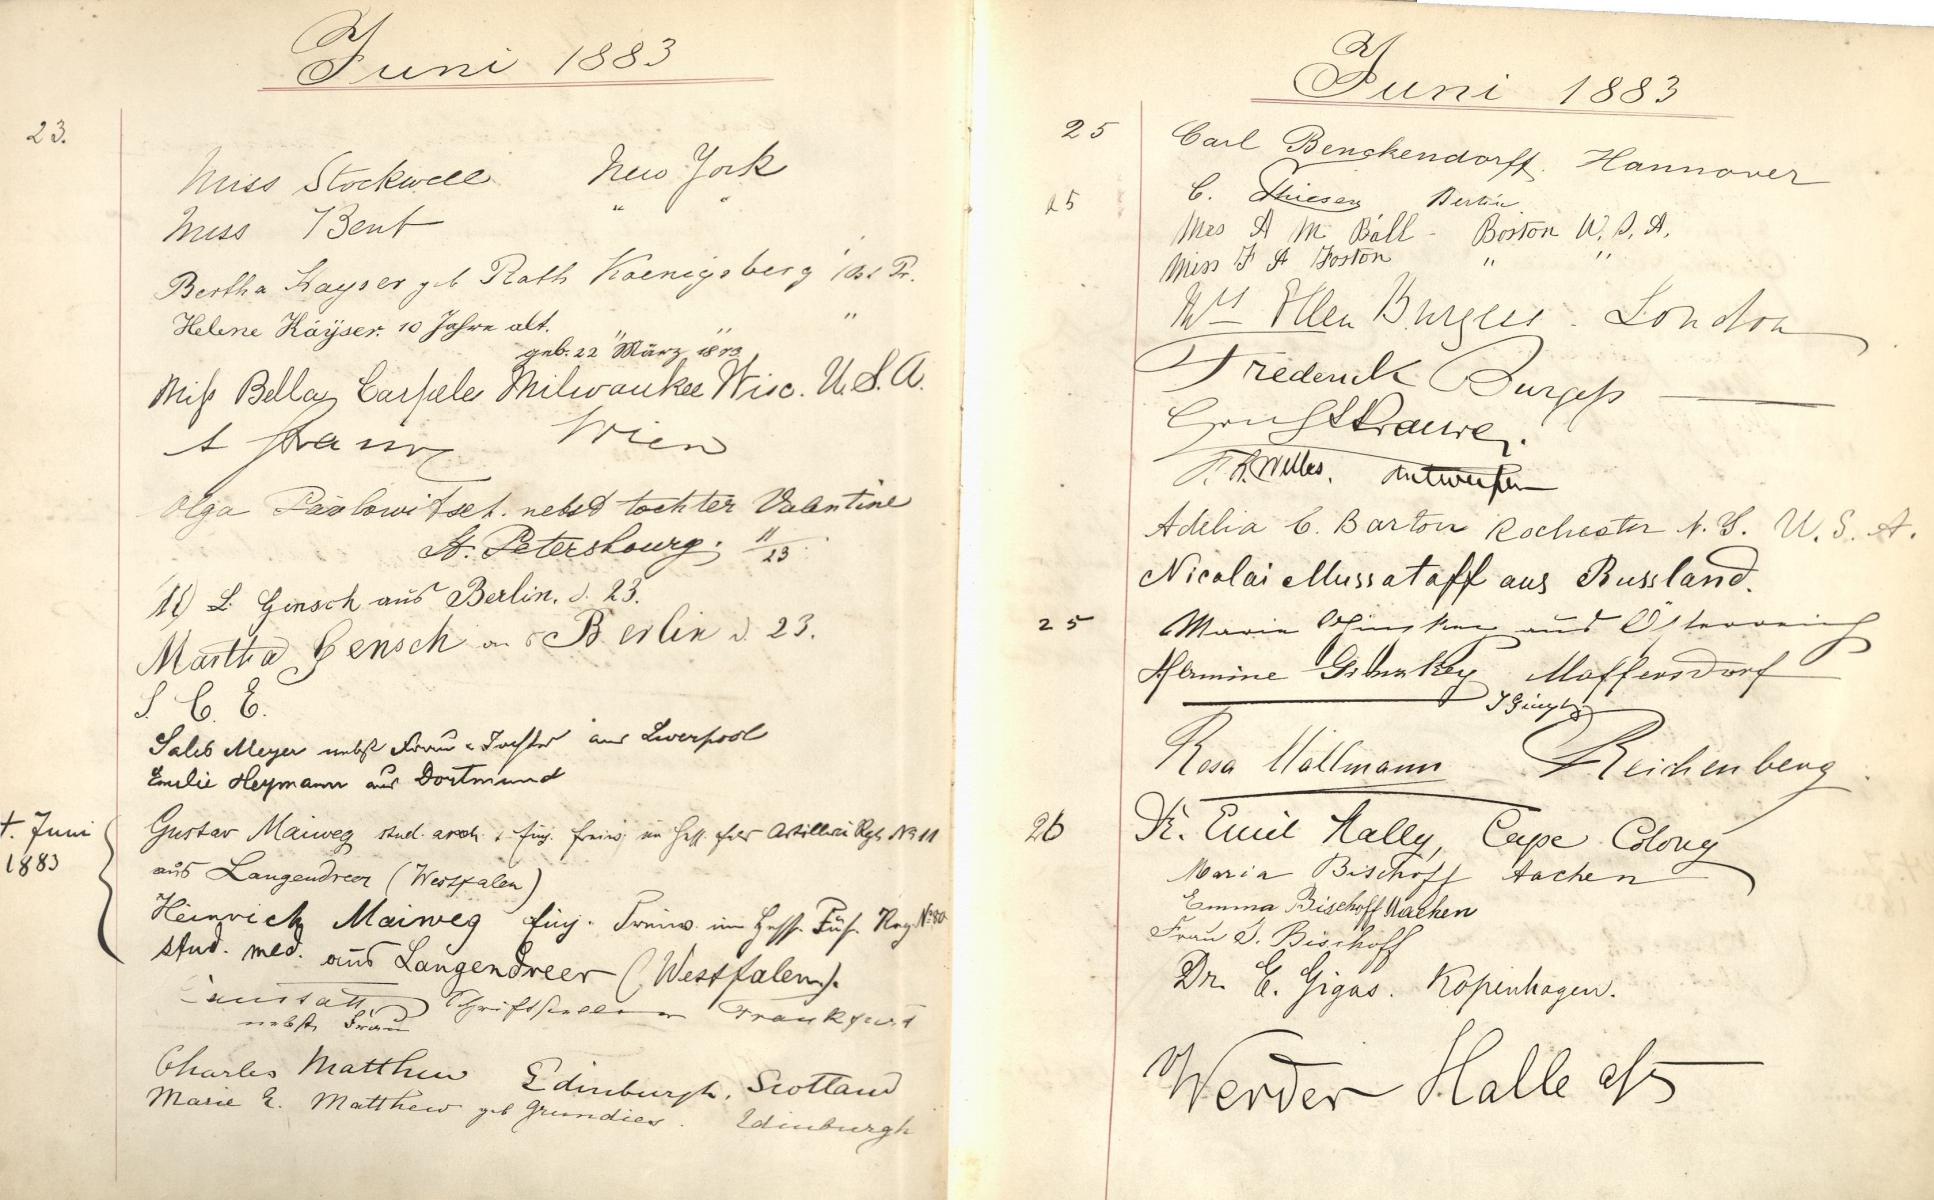 Juni 1883
23.
Miss Stockwell New York
Miss Bent " "
Bertha Kayser geb Rath Koenigsberg Pr.
Helene Käyser. 10 Jahre alt. " " "
geb. 22 März
Miss Bella Milwaukee Wisc. U.S.A.
Wien
Olga nebst tochter Valentine
St. Petersbourg. 11/23
L. Gensch aus Berlin. d. 23.
Martha Gensch aus Berlin d. 23.
S. C. E.
Meyer nebst Frau & Tochter aus Liverpool
Emilie Heymann aus Dortmund
†. Juni
1883
Gustav Maiweg stud. arch. Artillerie Rgt. No 11
aus Langendreer (Westfalen)
Heinrich Maiweg einj. Freiw. im Hess. Füs. Reg. No 80
stud. med. aus Langendreer (Westfalen).
Schriftsteller Frankfurt
nebst Frau
Charles Matthew Edinburgh, Scotland
Marie E. Matthew geb Grundies. Edinburgh
Juni 1883
25
Carl Benckendorff. Hannover
25
C. Thiesen Berlin
Mrs A M Ball - Boston U.S.A.
Miss F A Foston " "
Mrs Ellen Burgess. London
Frederick Burgess
F. R. Welles. Antwerpen
Adelia C. Barton Rochester N.Y. U.S.A.
Nicolai Mussatoff aus Russland.
25
Marie Ginzkey aus Österreich
Hermine Ginzkey Maffersdorf
Rosa Wallmann Reichenberg
26
Dr. Emil Cape Colony
Maria Bischoff Aachen
Emma Bischoff Aachen
Frau Bischoff
Dr. E. Gigas. Kopenhagen.
Werder Halle a/S